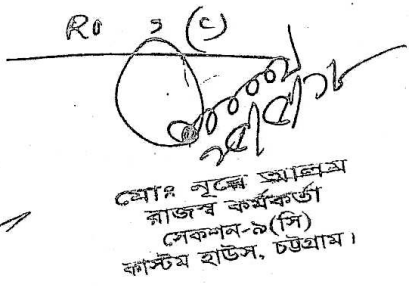 R0 5 (C)
মোঃ নূরে আলম
রাজস্ব কর্মকর্তা
সেকশন-৯(সি)
কাস্টম হাউস, চট্টগ্রাম।